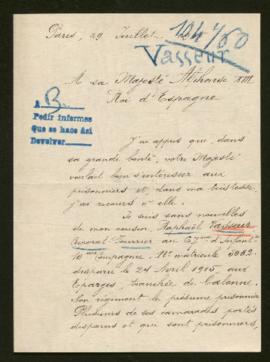 Paris, 29 Juillet
Vasseur
A sa Majesté Alphonse XIII
Roi d'Espagne
A
Pedir informes
Que se hace así
Devolver
J'ai appris que, dans
sa grande bonté, votre Majesté
voulait bien s'intéresser aux
prisonniers et, dans ma tristesse,
j'ai recours à elle.
Je suis sans nouvelles
de mon cousin, Raphaël Vasseur
caporal fourrier au d'Infant
10me Compagnie. No matricule 5002
disparu le 24 Avril 1915, aux
Eparges, tranchée de Calonne.
Son régiment le présume prisonnier
Plusieurs de ses camarades portés
disparus et qui sont prisonniers,